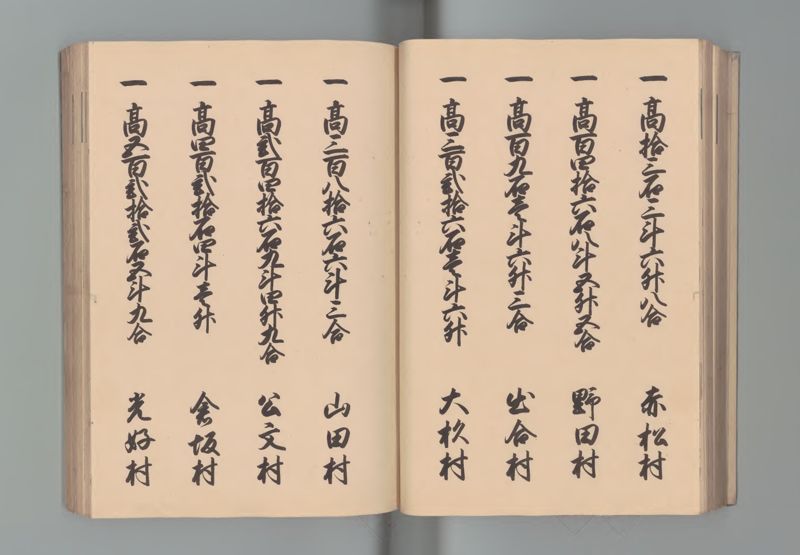 一 高拾三石三斗六升八合 赤松村
一 高百四拾六石八斗五升五合 野田村
一 高百九石壱斗六升三合 出合村
一 高三百弐拾六石壱斗六升 大杦村
一 高三百八拾六石六斗三合 山田村
一 高弐百四拾六石九斗四升九合 公文村
一 高四百弐拾石四斗壱升 倉坂村
一 高五百弐拾弐石五斗九合 光好村